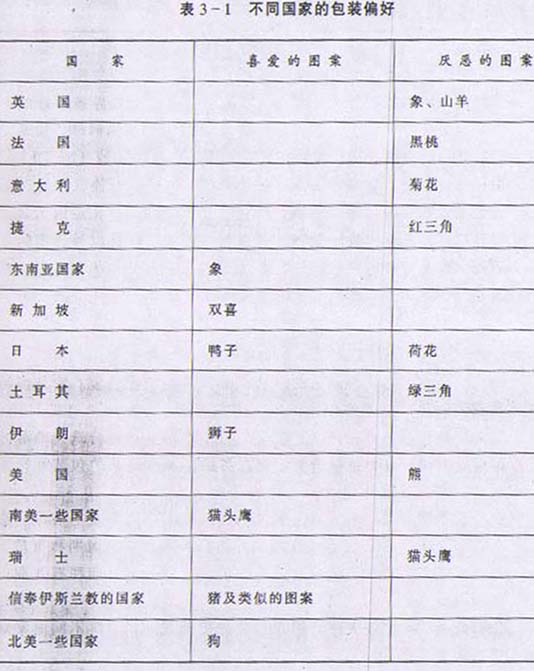 表 3-1 不同国家的包装偏好
国 家 喜爱的图案 厌恶的图案
英 国 象、山羊
法 国 黑桃
意大利 菊花
捷 克 红三角
东南亚国家 象
新加坡 双喜
日 本 鸭子 荷花
土耳其 绿三角
伊 朗 狮子
美 国 熊
南美一些国家 猫头鹰
瑞 士 猫头鹰
信奉伊斯兰教的国家 猪及类似的图案
北美一些国家 狗